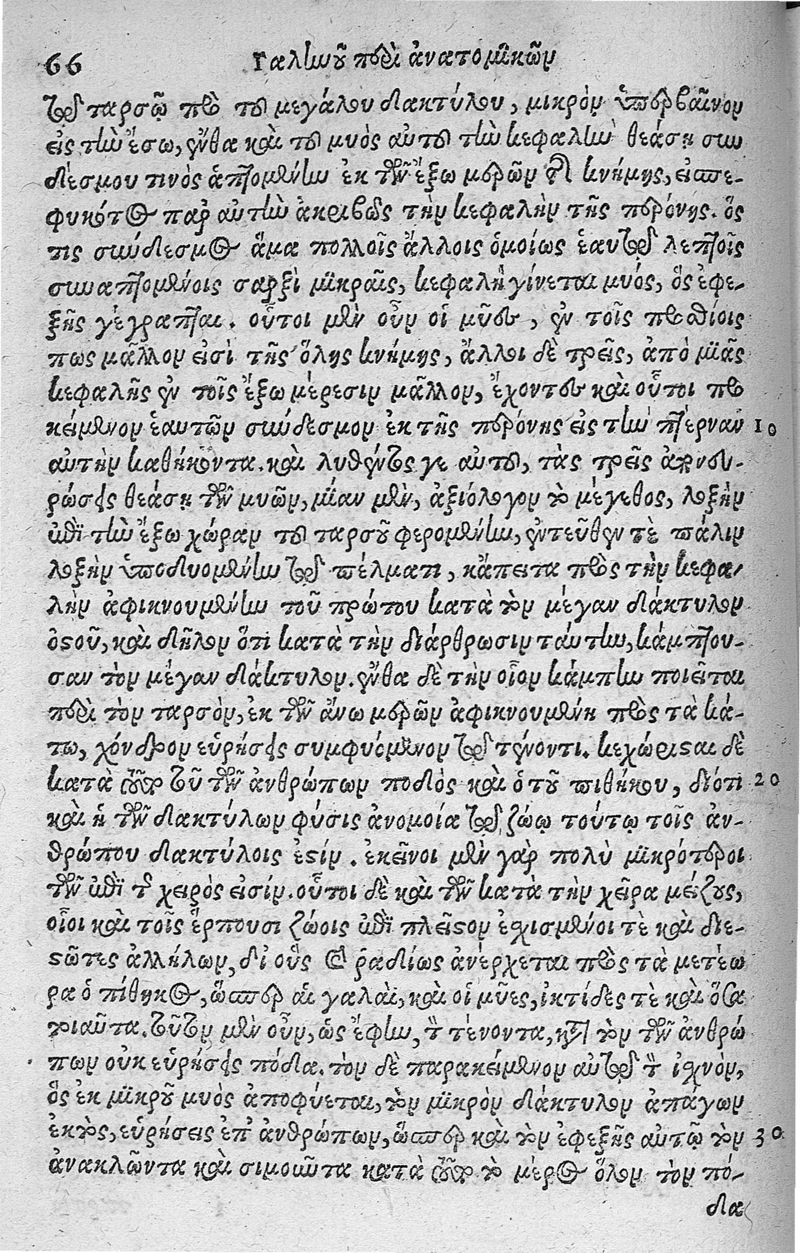 66 Γαλἰωοῦ περὶ ἀνατομικῶν
τοῦ ταρσῷ πρὸ τοῦ μεγάλου δακτύλου, μικρὸν ὑπερβαῖνον
εἰς τὴν ἔσω, ἔνθα καὶ τοῦ μυὸς αὐτοῦ τὴν κεφαλὴν θεάσῃ συν
δέσμου τινὸς ἁπτομένην ἐκ τῶν ἔξω μερῶν τῆς κνήμης, ἐμπε-
φυκότος παρ αὐτὴν ἀκριβῶς τὴν κεφαλὴν τῆς περόνης. ὅς
τις σύνδεσμος ἅμα πολλοῖς ἄλλοις ὁμοίως ἑαυτῷ λεπτοῖς
συναπτομένοις σαρξὶ μικραῖς, κεφαλὴ γίνεται μυός, ὃς ἐφε-
ξῆς γέγραπται. οὗτοι μὲν οὖν οἱ μῦες, ἐν τοῖς προσθίοις
πως μᾶλλον εἰσὶ τῆς ὅλης κνήμης, ἄλλοι δὲ τρεῖς, ἀπὸ μιᾶς
κεφαλῆς ἐν τοῖς ἔξω μέρεσιν μᾶλλον, ἔχοντες καὶ οὗτοι προ
κείμενον ἑαυτῶν σύνδεσμον ἐκ τῆς περόνης εἰς τὴν πτέρναν 10
αὐτὴν καθήκοντα. καὶ λυθέντος γε αὐτοῦ, τὰς τρεῖς ἀπονευ-
ρώσεις θεάσῃ τῶν μυῶν, μίαν μὲν, ἀξιόλογον τὸ μέγεθος, λοξὴν
ἐπὶ τὴν ἔξω χώραν τοῦ ταρσοῦ φερομένην, ἐντεῦθεν τὲ πάλιν
λοξὴν ὑποδυομένην τῷ πέλματι, κἄπειτα πρὸς τὴν κεφα-
λὴν ἀφικνουμένην τοῦ πρώτου κατὰ τὸν μέγαν δάκτυλον
ὀστοῦ, καὶ δῆλον ὅτι κατὰ τὴν διάρθρωσιν ταύτην, κάμπτου-
σαν τὸν μέγαν δάκτυλον. ἔνθα δὲ τὴν οἷον κάμπην ποιεῖται
περὶ τὸν ταρσὸν, ἐκ τῶν ἄνω μερῶν ἀφικνουμένη πρὸς τὰ κά-
τω, χόνδρον εὑρήσεις συμφυόμενον τῷ τένοντι. κεχώρισται δὲ
κατὰ τοῦτο τοῦ τῶν ἀνθρώπων ποδὸς καὶ ὁ τοῦ πιθήκου, διότι 20
καὶ ἡ τῶν δακτύλων φύσις ἀνομοία τῷ ζώῳ τούτῳ τοῖς ἀν-
θρώπου δακτύλοις ἐστίν. ἐκεῖνοι μὲν γὰρ πολὺ μικρότεροι
τῶν ἐπὶ τῆς χειρός εἰσίν. οὗτοι δὲ καὶ τῶν κατὰ τὴν χεῖρα μείζους,
οἷοι καὶ τοῖς ἕρπουσι ζώοις ἐπὶ πλεῖστον ἐσχισμένοι τὲ καὶ διε-
στῶτες ἀλλήλων, δι οὓς καὶ ῥαδίως ἀνέρχεται πρὸς τὰ μετέω
ρα ὁ πίθηκος, ὥσπερ αἱ γαλαῖ, καὶ οἱ μῦες, ἰκτίδες τὲ καὶ ὅσα
τοιαῦτα. τοῦτον μὲν οὖν, ὡς ἔφην, τὸν τένοντα, κατὰ τὸν τῶν ἀνθρώ
πων οὐκ εὑρήσεις πόδα. τὸν δὲ παρακείμενον αὐτῷ τὸν ἰσχνὸν,
ὃς ἐκ μικροῦ μυὸς ἀποφύεται, τὸν μικρὸν δάκτυλον ἀπάγων
ἐκτὸς, εὑρήσεις ἐπ' ἀνθρώπων, ὥσπερ καὶ τὸν ἐφεξῆς αὐτῷ τὸν 30
ἀνακλῶντα καὶ σιμοῦντα κατὰ τοῦτο τὸ μέρος ὅλον τὸν πό-
δα